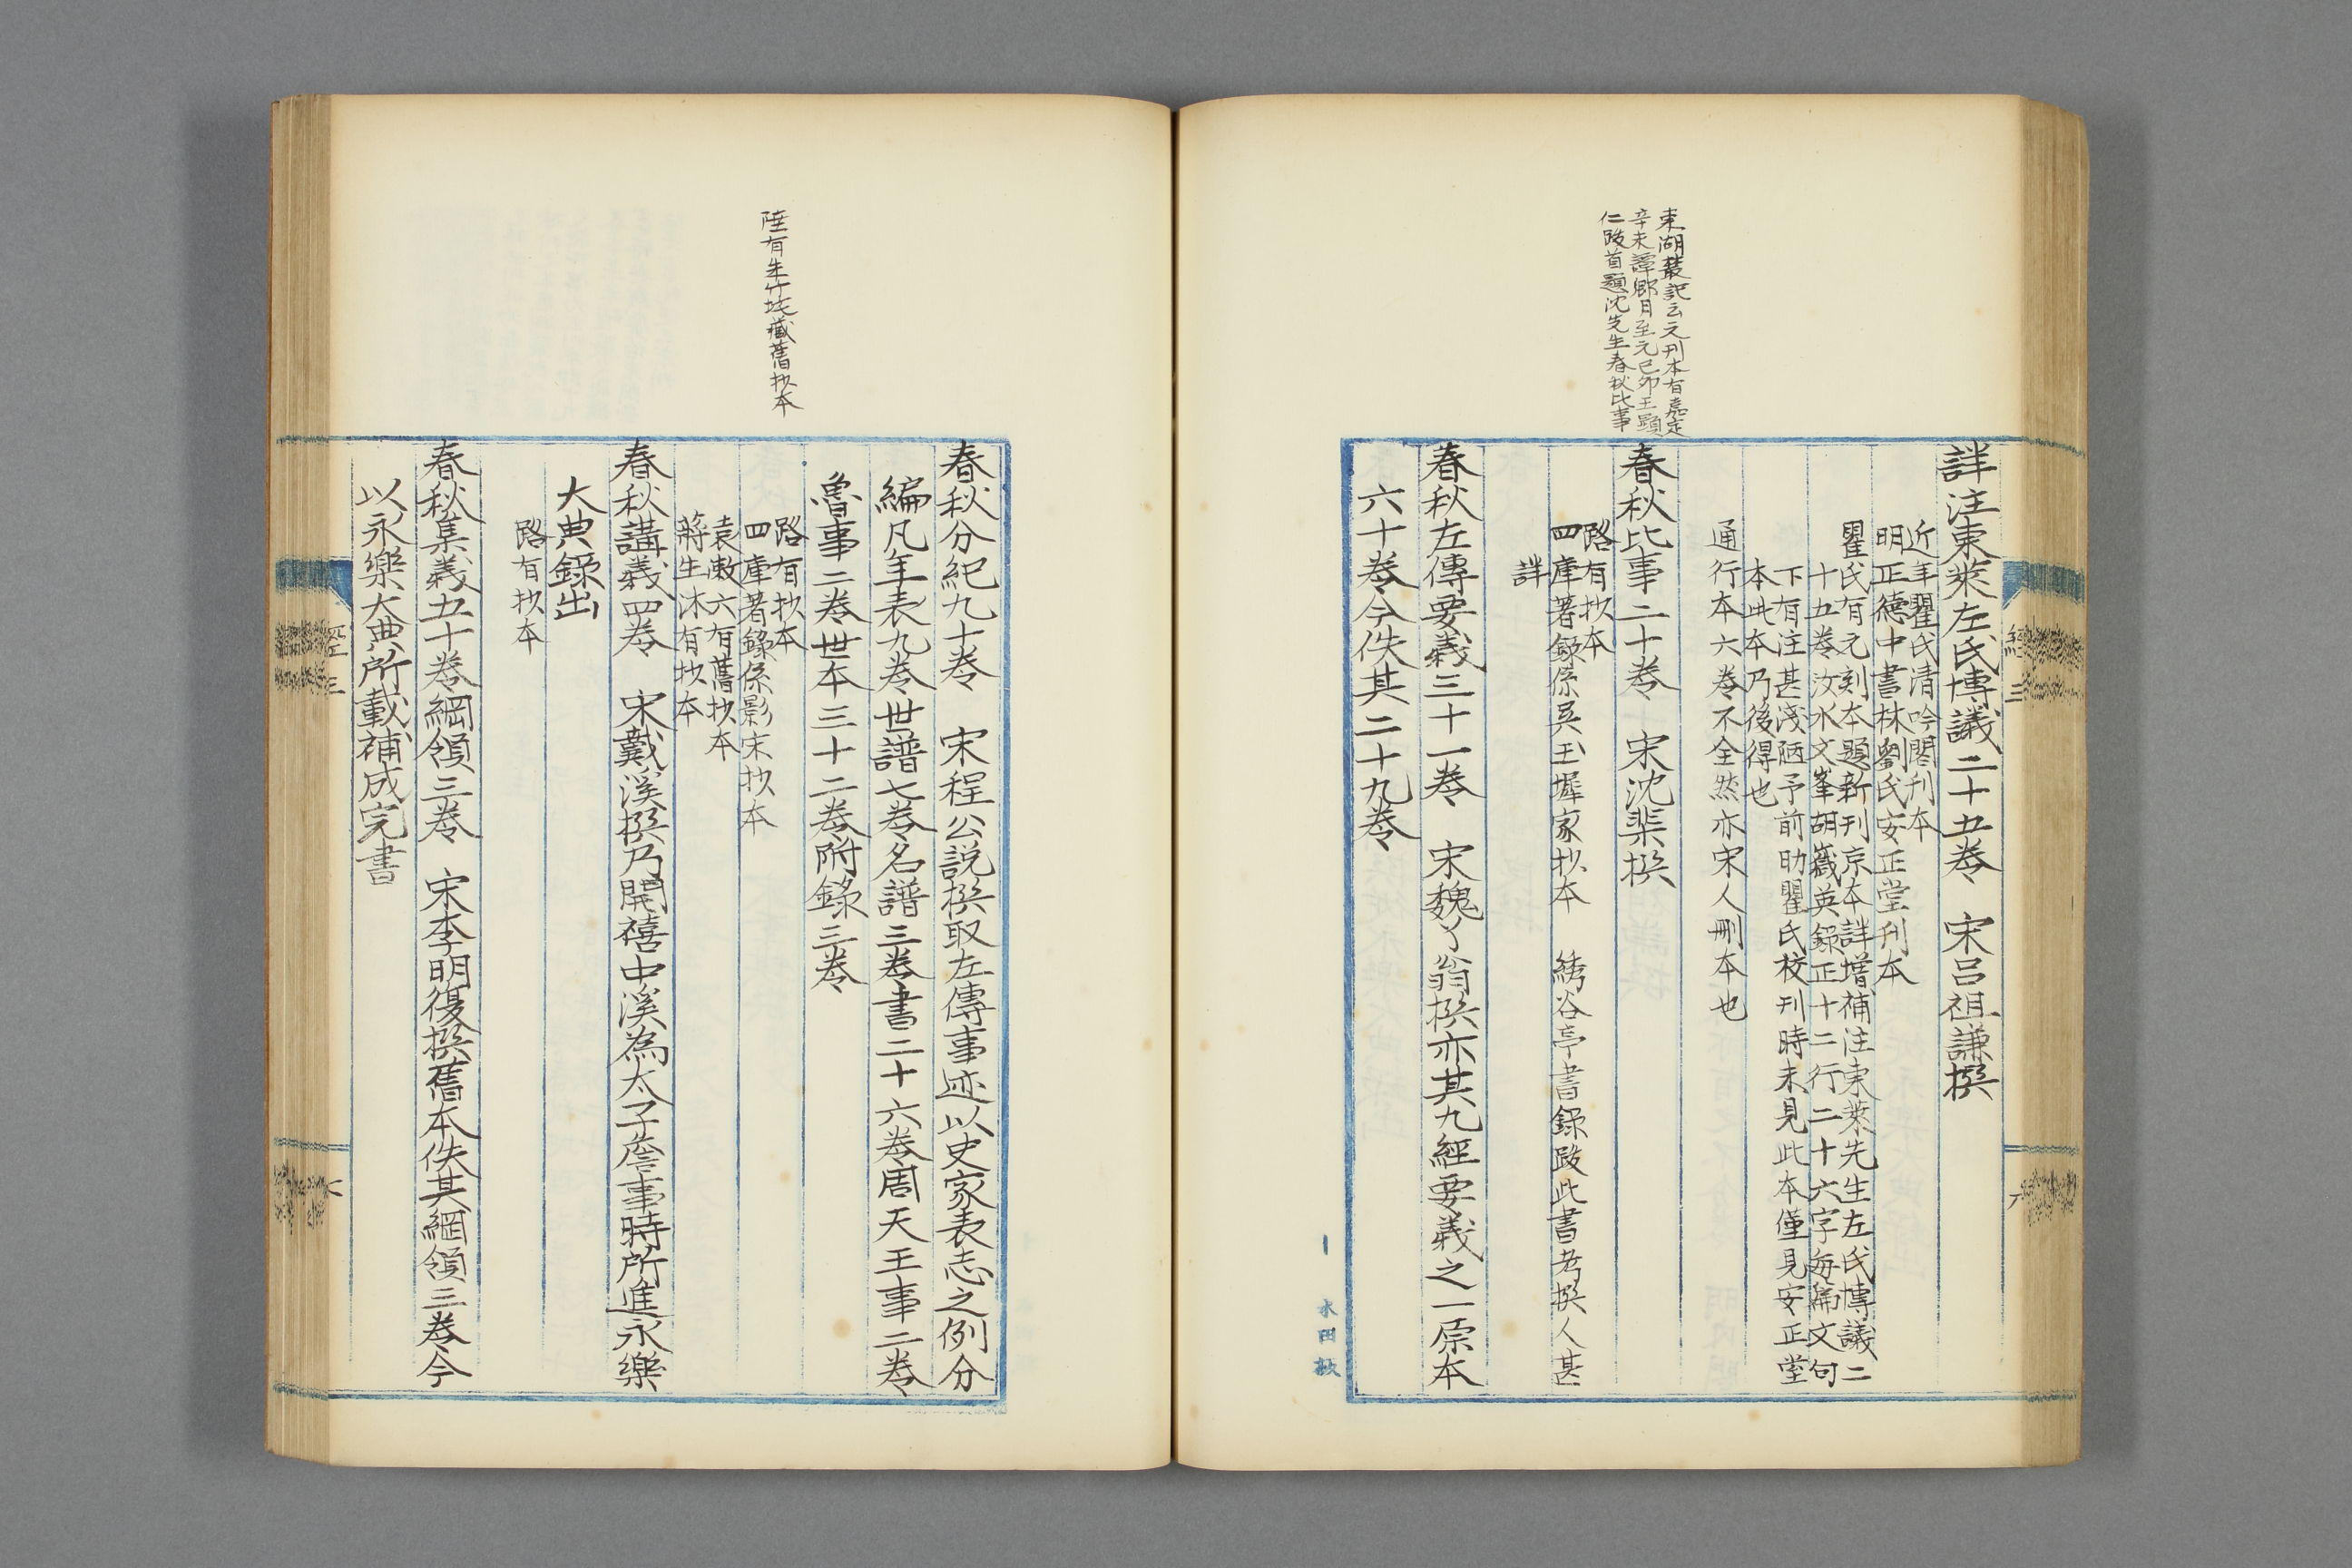 東湖叢記云元刊本有嘉定
辛未譚卿月至元己卯王顕
仁跋首題沈先生春秋比事
詳注東萊左氏博議二十五卷　宋呂祖謙撰
近年瞿氏清吟閣刊本
明正德中書林劉氏安正堂刊本
瞿氏有元刻本題新刊京本詳增補注東萊先生左氏博議二
十五卷汝水文峯胡箴英錄正十二行二十六字每篇文句
下有注甚淺陋予前助瞿氏校刊時未見此本僅見安正堂
本此本乃後得也
通行本六卷不全然亦宋人刪本也
春秋比事二十卷　宋沈棐撰
路有抄本
四庫著錄係吳玉墀家抄本　綉谷亭書錄跋此書考撰人甚
詳
春秋左傳要義三十一卷　宋魏了翁撰亦其九經要義之一原本
六十卷今佚其二十九卷
經三
六
木田敉
陸有朱竹垞藏舊抄本
春秋分紀九十卷　宋程公說撰取左傳事迹以史家表志之例分
編凡年表九卷世譜七卷名譜三卷書二十六卷周天王事二卷
魯事二卷世本三十二卷附錄三卷
路有抄本
四庫著錄係影宋抄本
袁漱六有舊抄本
蔣生沐有抄本
春秋講義四卷　宋戴溪撰乃開禧中溪為太子詹事時所進永樂
大典錄出
路有抄本
春秋集義五十卷綱領三卷　宋李明復撰舊本佚其綱領三卷今
以永樂大典所載補成完書
經三